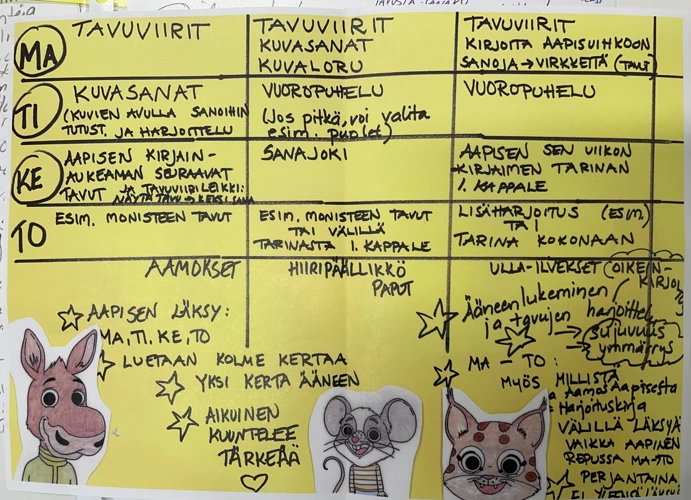 MA
TAVUVIIRIT
TAVUVIIRIT
KUVASANAT
KUVALORU
TAVUVIIRIT
KIRJOITA AAPISVIHKOON
SANOJA → VIRKKEITÄ (TAUT)
TI
KUVASANAT
(KUVIEN AVULLA SANOIHIN
TUTUST. JA HARJOITTELU
VUOROPUHELU
(Jos pitkä, voi valita
esim. puolet)
VUOROPUHELU
KE
AAPISEN KIRJAIN-
AUKEAMAN SEURAAVAT
TAVUT JA TAVUVIIRILEIKKI:
NÄYTÄ TAVU → KEKSI SANA
SANAJOKI
AAPISEN SEN VIIKON
KIRJAIMEN TARINAN
1. KAPPALE
TO
ESIM. MONISTEEN TAVUT
ESIM. MONISTEEN TAVUT
TAI VÄLILLÄ
TARINASTA 1. KAPPALE
LISÄHARJOITUS (ESIM)
TAI
TARINA KOKONAAN
AAMOKSET
HIIRIPÄÄLLIKKÖ
PAPUT
ULLA-ILVEKSET (OIKEIN-
KIRJOI
AAPISEN LÄKSY:
MA, TI, KE, TO
LUETAAN KOLME KERTAA
YKSI KERTA ÄÄNEEN
AIKUINEN
KUUNTELEE
TÄRKEÄÄ
Ääneen lukeminen
ja tavujen harjoittelu
→ sujuvuus
ymmärrys
MA - TO:
MYÖS MILLISTÄ
Aamos Aapisesta
Harjoituskirja
VÄLILLÄ LÄKSYÄ
VAIKKA AAPINEN
REPUSSA MA-TO
PERJANTAINA
EI